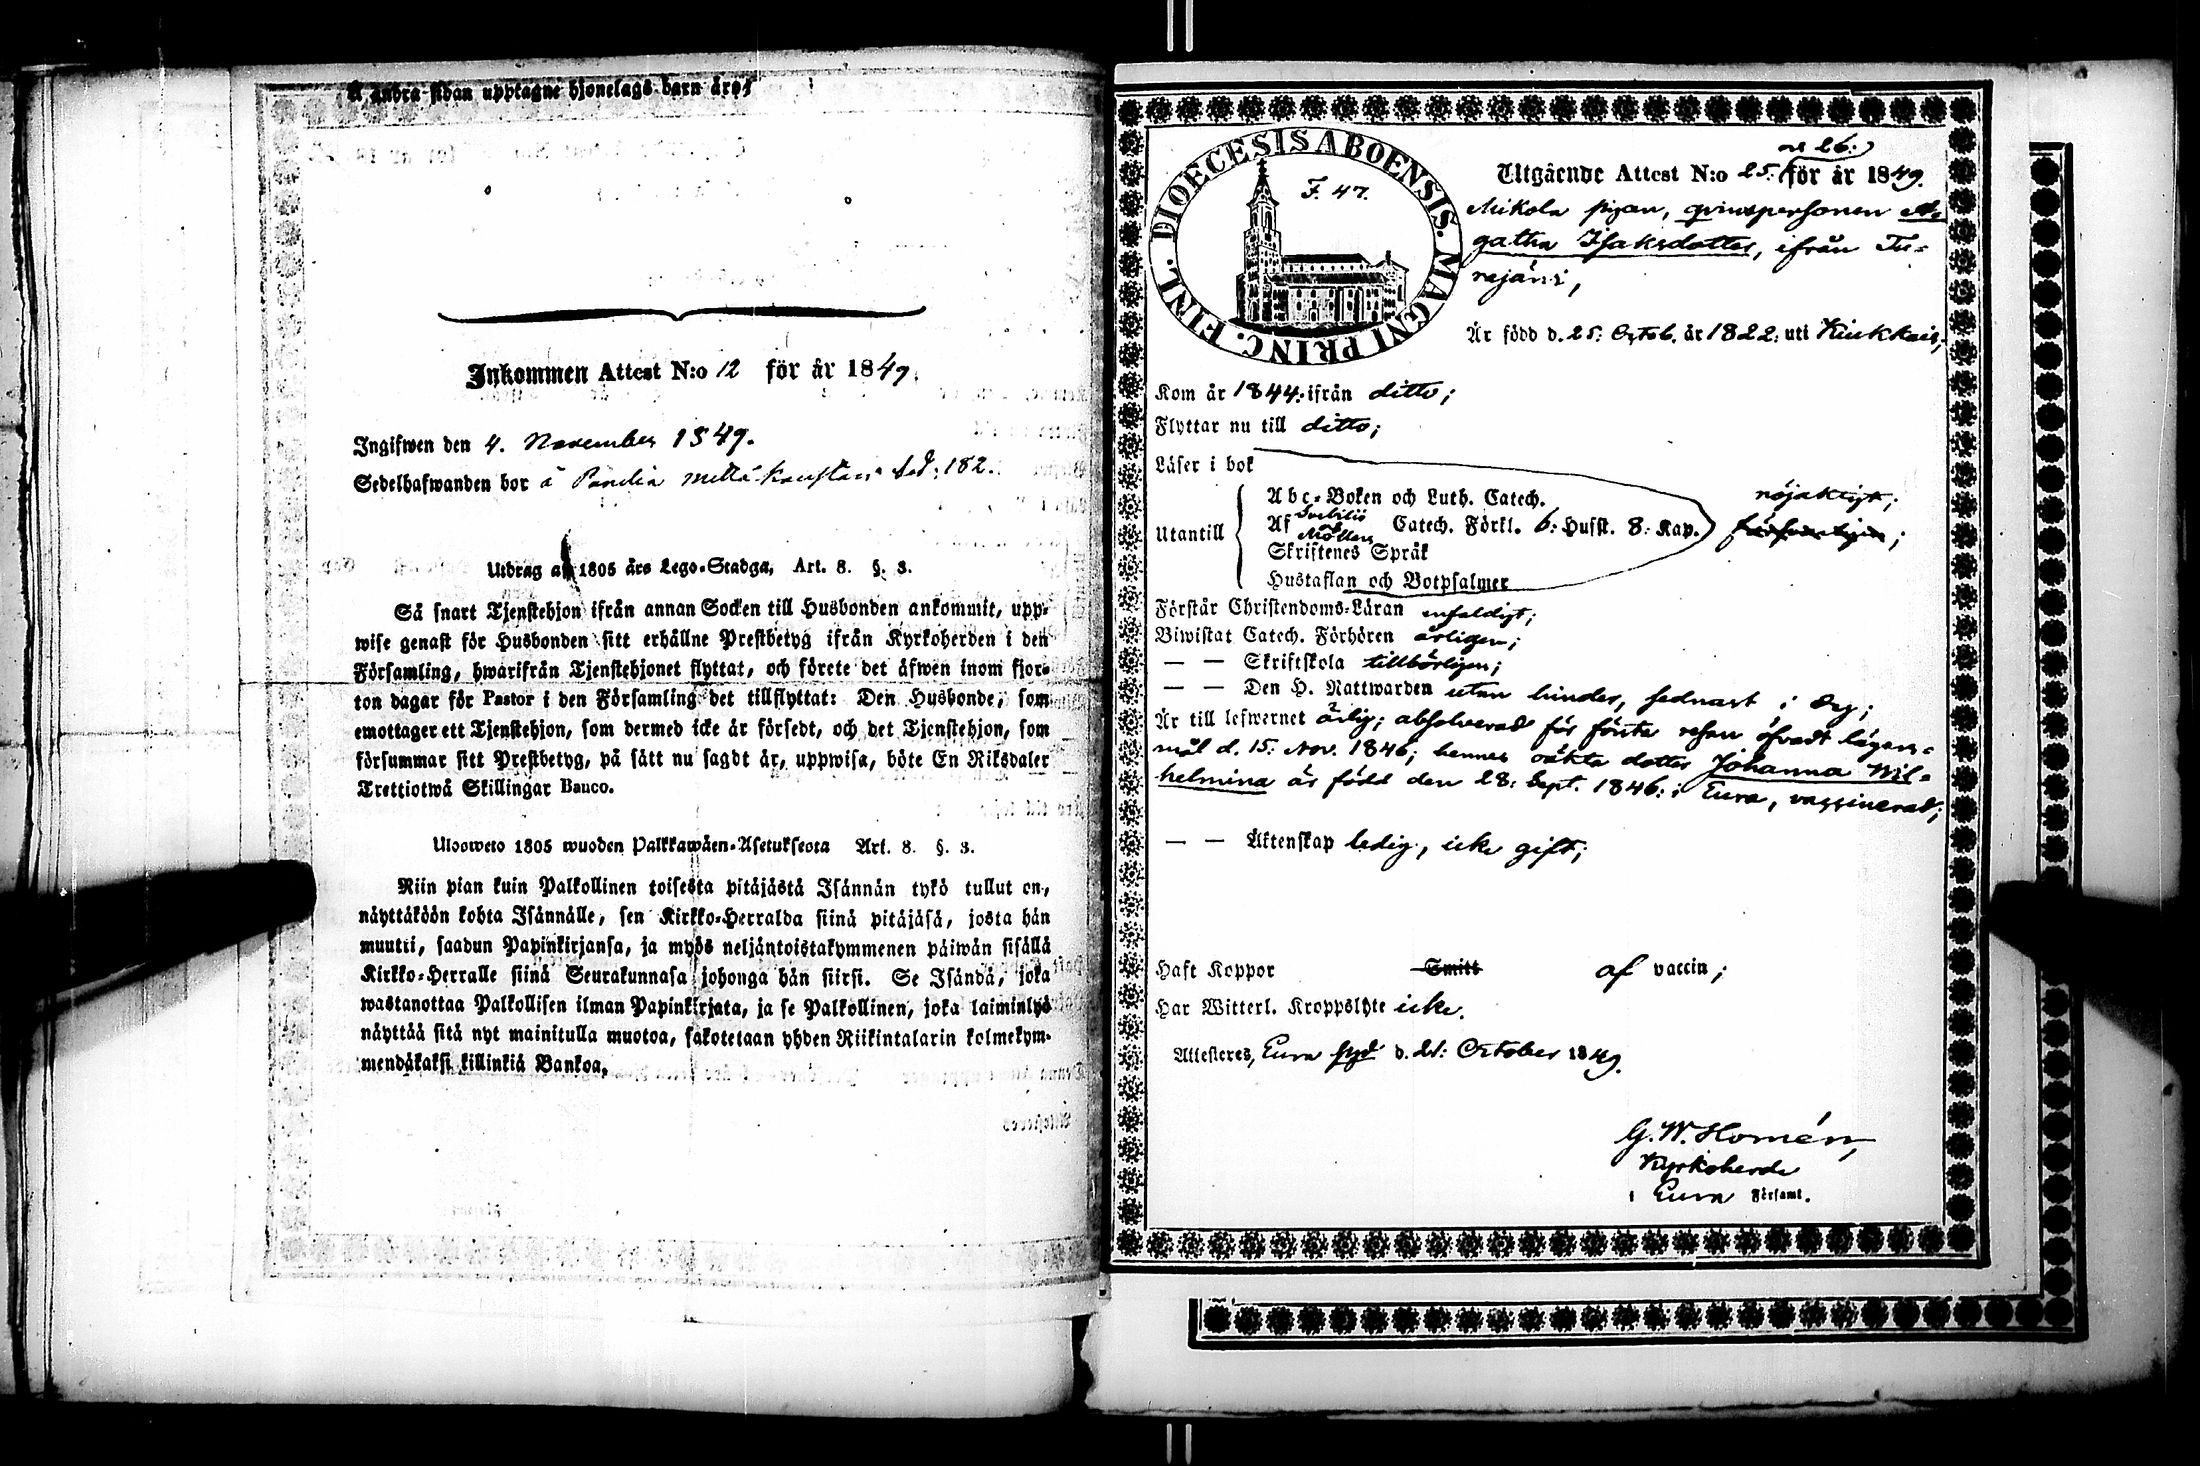 Å andra sidan upptagne hjonelags barn äro;
Inkommen Attest N:o 12 för år 1849.
Ingifwen den 4. November 1849.
Sedelhafwanden bor å Panelia sid: 182.
Utdrag af 1805 års Lego-Stadga, Art. 8. §. 3.
Så snart Tjenstehjon ifrån annan Socken till Husbonden ankommit, upp-
wise genast för Husbonden sitt erhållne Prestbetyg ifrån Kyrkoherden i den
Församling, hwarifrån Tjenstehjonet flyttat, och förete det äfwen inom fjor-
ton dagar för Pastor i den Församling det tillflyttat: Den Husbonde, som
emottager ett Tjenstehjon, som dermed icke är försedt, och det Tjenstehjon, som
försummar sitt Prestbetyg, på sätt nu sagdt är, uppwisa, böte En Riksdaler
Trettiotwå Skillingar Banco.
Ulosweto 1805 wuoden Palkkawäen-Asetuksesta Art. 8. §. 3.
Niin pian kuin Palkollinen toisesta pitäjästä Isännän tykö tullut on,
näyttäköön kohta Isännälle, sen Kirkko-Herralda siinä pitäjäsä, josta hän
muutti, saadun Papinkirjansa, ja myös neljäntoistakymmenen päiwän sisällä
Kirkko-Herralle siinä Seurakunnasa johonga hän siirsi. Se Isändä, joka
wastanottaa Palkollisen ilman Papinkirjata, ja se Palkollinen, joka laiminlyö
näyttää sitä nyt mainitulla muotoa, sakotetaan yhden Riikintalarin kolmekym-
mendäkaksi killinkiä Bankoa.
DIOECESIS ABOENSIS. MAGNI PRINC. FINL.
F. 47.
och 26:
Utgående Attest N:o 25: för år 1849.
Mikola pigan, qvinspersonen A-
gatha Isaksdotter, ifrån Tu-
rejäri,
Är född d. 25: Octob. år 1822: uti Kiukkais;
Kom år 1844: ifrån ditto;
Flyttar nu till ditto;
Läser i bok
Utantill
Abc-Boken och Luth. Catech. nöjaktigt;
Af Svebilii och Möllers Catech. Förkl. 6: Husst. 8: Kap.
Skriftenes Språk
Hustaflan och Botpsalmer
Förstår Christendoms-Läran enfaldigt;
Biwistat Catech. Förhören årligen;
— — Skriftskola tillbörligen;
— — Den H. Nattwarden utan hinder, sednast i Sep;
Är till lefwernet ärlig; absolverad för första resan öfvadt lägers-
mål d. 15. Nov. 1846; hennes oäkta dotter Johanna Wil-
helmina är född den 28: Sept. 1846: i Eura, vaccinerad;
— — Äktenskap ledig, icke gift;
Haft Koppor Smitt af vaccin;
Har Witterl. Kroppslyte icke.
Attesteres, Eura d. 21: October 1849.
G. W. Homén,
Kyrkoherde
i Eura Församl.